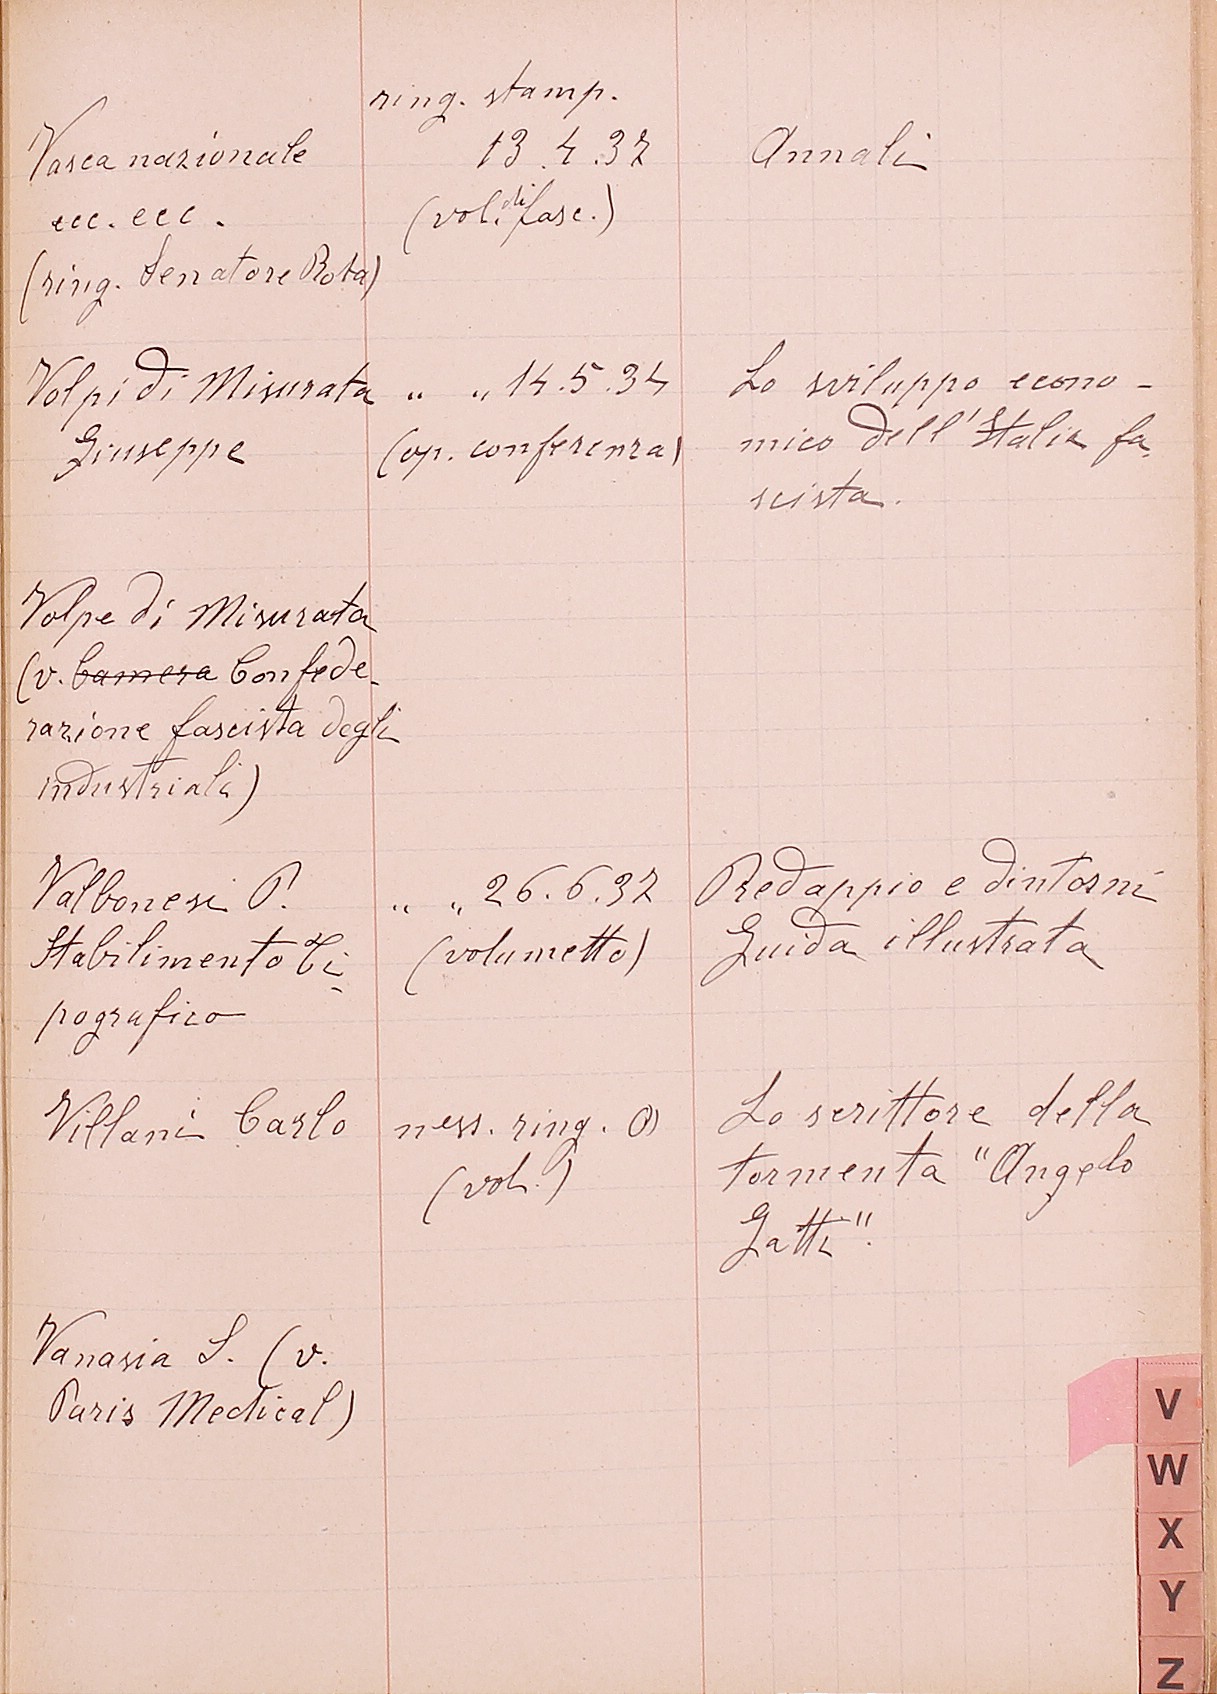 ring. stamp.
Vasca nazionale 13.4.37 Annali
ecc. ecc. (vol. di fasc.)
(ring. Senatore Rota)
Volpi di Misurata " " 14.5.34 Lo sviluppo econo-
Giuseppe (op. conferenza) mico dell'Italia fa-
scista.
Volpe di Misurata
(v. Camera Confede-
razione fascista degli
industriali)
Valbonesi P. " " 26.6.37 Predappio e dintorni
Stabilimento Ti- (volumetto) Guida illustrata
pografico
Villani Carlo ness. ring. Lo scrittore della
(vol.) tormenta "Angelo
Gatti".
Vanasia S. (v.
Paris Medical)
V
W
X
Y
Z